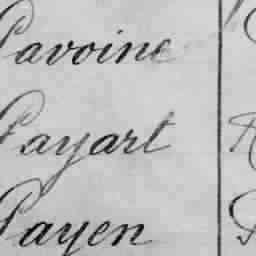 Pavoine
Payart
Payen